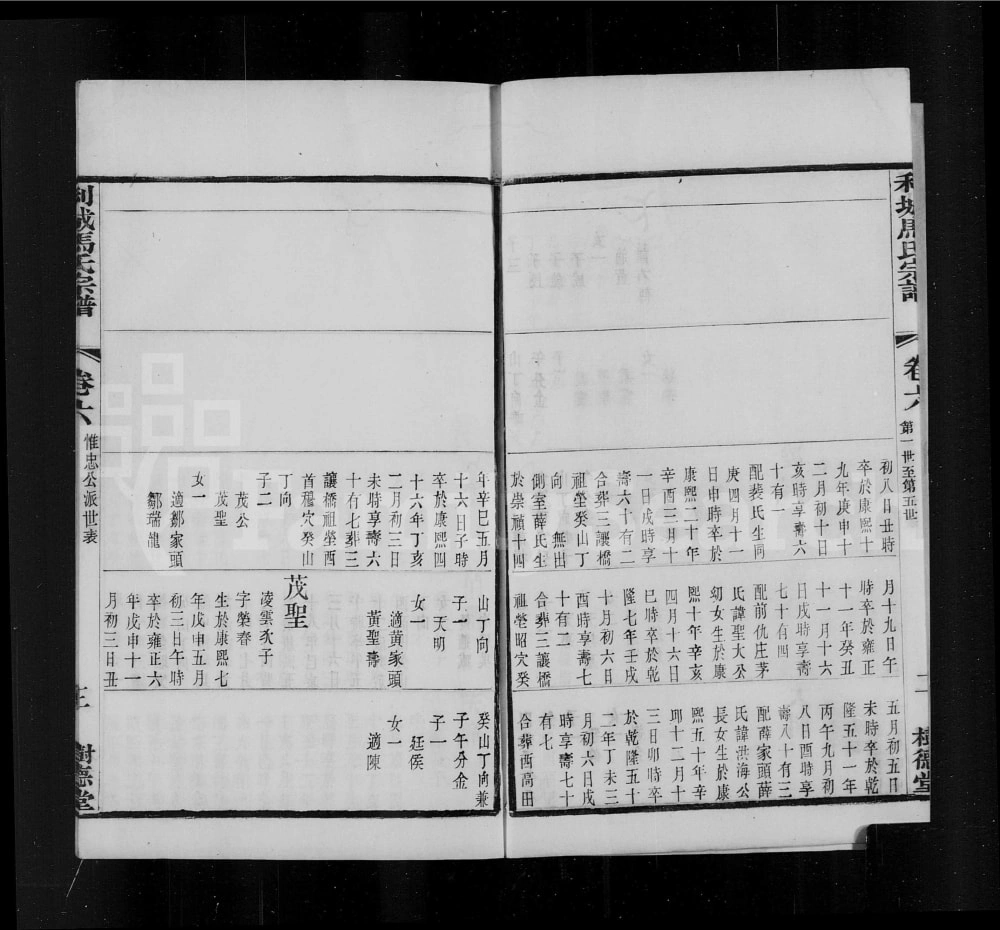 利城馬氏宗譜
卷六
第一世至第五世
二
樹德堂
初八日丑時
卒於康熙十
九年庚申十
二月初十日
亥時享壽六
十有一
配裴氏生同
庚四月十一
日申時卒於
康熙二十年
辛酉三月十
一日戌時享
壽六十有二
合葬三讓橋
祖塋癸山丁
向　無出
側室薛氏生
於崇禎十四
月十九日午
時卒於雍正
十一年癸丑
十一月十六
日戌時享壽
七十有四
配前仇庄茅
氏諱聖大公
幼女生於康
熙十年辛亥
四月十六日
巳時卒於乾
隆七年壬戌
十月初六日
酉時享壽七
十有二
合葬三讓橋
祖塋昭穴癸
五月初五日
未時卒於乾
隆五十一年
丙午九月初
八日酉時享
壽八十有三
配薛家頭薛
氏諱洪海公
長女生於康
熙五十年辛
卯十二月十
三日卯時卒
於乾隆五十
二年丁未三
月初六日戌
時享壽七十
有七
合葬西高田
年辛巳五月
十六日子時
卒於康熙四
十六年丁亥
二月初三日
未時享壽六
十有七葬三
讓橋祖塋酉
首穆穴癸山
丁向
子二
茂公
茂聖
女一
適鄒家頭
鄒瑞龍
山丁向
子一
天明
女一
適黃家頭
黃聖壽
茂聖
凌雲次子
字榮春
生於康熙七
年戊申五月
初三日午時
卒於雍正六
年戊申十一
月初三日丑
癸山丁向兼
子午分金
子一
廷侯
女一
適陳
利城馬氏宗譜
卷六
惟忠公派世表
三
樹德堂